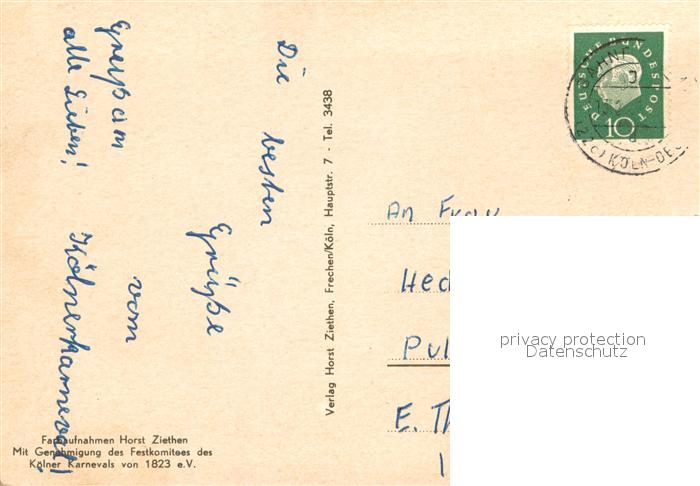 Die besten
Grüße
vom
Kölnerkarneval!
Grüß an
alle Lieben!
Verlag Horst Ziethen, Frechen/Köln, Hauptstr. 7 - Tel. 3438
Farbaufnahmen Horst Ziethen
Mit Genehmigung des Festkomitees des
Kölner Karnevals von 1823 e.V.
DEUTSCHE BUNDESPOST
10
KÖLN-DE
An Frau
Hed
Pul
E. Th
1
privacy protection
Datenschutz